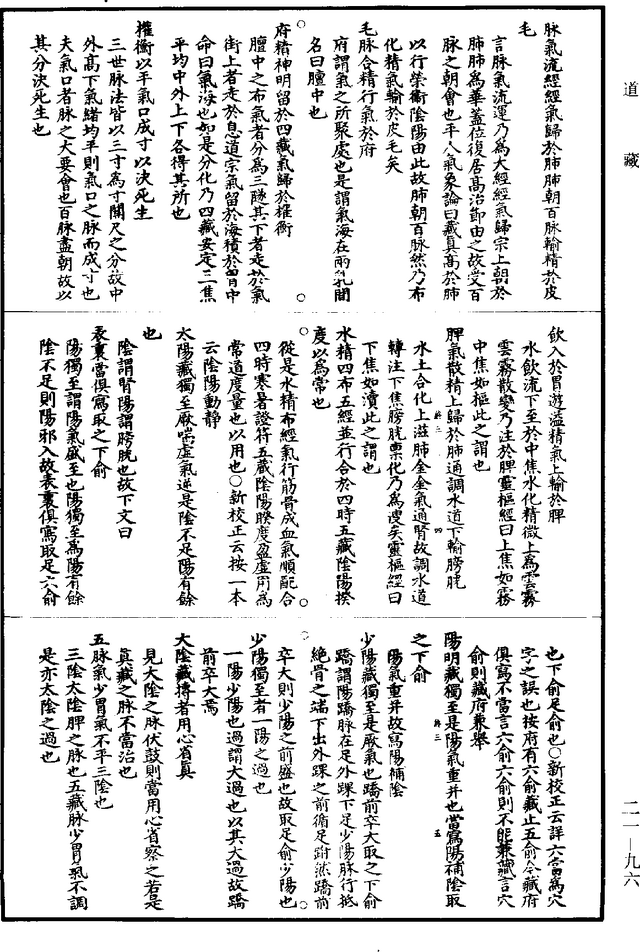 道藏
脉氣流經經氣歸於肺肺朝百脉輸精於皮
毛
言脉氣流運乃爲大經經氣歸宗上朝於
肺肺爲華蓋位復居高治節由之故受百
脉之朝會也平人氣象論曰藏真高於肺
以行榮衛陰陽由此故肺朝百脉然乃布
化精氣輸於皮毛矣
毛脉合精行氣於府
府謂氣之所聚處也是謂氣海在兩乳間
名曰膻中也
府精神明留於四藏氣歸於權衡
膻中之布氣者分爲三隧其下者走於氣
街上者走於息道宗氣留於海積於胷中
命曰氣海也如是分化乃四藏安定三焦
平均中外上下各得其所也
權衡以平氣口成寸以決死生
三世脉法皆以三寸爲寸關尺之分故中
外高下氣緒均平則氣口之脉而成寸也
夫氣口者脉之大要會也百脉盡朝故以
其分決死生也
飲入於胃遊溢精氣上輸於脾
水飲流下至於中焦水化精微上爲雲霧
雲霧散變乃注於脾靈樞經曰上焦如霧
中焦如樞此之謂也
脾氣散精上歸於肺通調水道下輸膀胱
水土合化上滋肺金金氣通腎故調水道
轉注下焦膀胱禀化乃爲溲矣靈樞經曰
下焦如瀆此之謂也
水精四布五經並行合於四時五藏陰陽揆
度以爲常也
從是水精布經氣行筋骨成血氣順配合
四時寒暑證符五藏陰陽揆度盈虛用爲
常道度量也以用也○新校正云按一本
云陰陽動靜
太陽藏獨至厥喘虛氣逆是陰不足陽有餘
也
陰謂腎陽謂膀胱也故下文曰
表裏當俱寫取之下俞
陽獨至謂陽氣盛至也陽獨至爲陽有餘
陰不足則陽邪入故表裏俱寫取足六俞
終三
四
也下俞足俞也○新校正云詳六當爲穴
字之誤也按府有六俞藏止五俞今藏府
俱寫不當言六俞六俞則不能兼藏言穴
俞則藏府兼舉
陽明藏獨至是陽氣重并也當寫陽補陰取
之下俞
陽氣重并故寫陽補陰
少陽藏獨至是厥氣也蹻前卒大取之下俞
蹻謂陽蹻脉在足外踝下足少陽脉行抵
絶骨之端下出外踝之前循足跗然蹻前
卒大則少陽之前盛也故取足俞少陽也
少陽獨至者一陽之過也
一陽少陽也過謂大過也以其大過故蹻
前卒大焉
大陰藏摶者用心省真
見大陰之脉伏鼓則當用心省察之若是
真藏之脉不當治也
五脉氣少胃氣不平三陰也
三陰大陰脾之脉也五藏脉少胃氣不調
是亦太陰之過也
終三
五
二一—九六